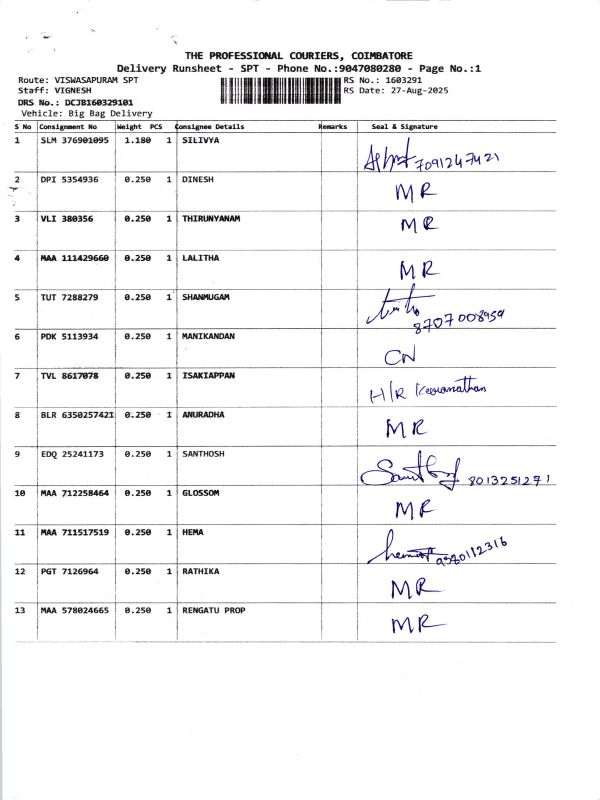 THE PROFESSIONAL COURIERS, COIMBATORE
Delivery Runsheet - SPT - Phone No.:9047080280 - Page No.:1
Route: VISWASAPURAM SPT RS No.: 1603291
Staff: VIGNESH RS Date: 27-Aug-2025
DRS No.: DCJB160329101
Vehicle: Big Bag Delivery
S No Consignment No Weight PCS Consignee Details Remarks Seal & Signature
1 SLM 376901095 1.180 1 SILIVYA 7091247421
2 DPI 5354936 0.250 1 DINESH MR
3 VLI 380356 0.250 1 THIRUNYANAM MR
4 MAA 111429660 0.250 1 LALITHA MR
5 TUT 7288279 0.250 1 SHANMUGAM 8707008959
6 PDK 5113934 0.250 1 MANIKANDAN CN
7 TVL 8617078 0.250 1 ISAKIAPPAN H/R
8 BLR 6350257421 0.250 1 ANURADHA MR
9 EDQ 25241173 0.250 1 SANTHOSH 8013251271
10 MAA 712258464 0.250 1 GLOSSOM MR
11 MAA 711517519 0.250 1 HEMA 9580112316
12 PGT 7126964 0.250 1 RATHIKA MR
13 MAA 578024665 0.250 1 RENGATU PROP MR